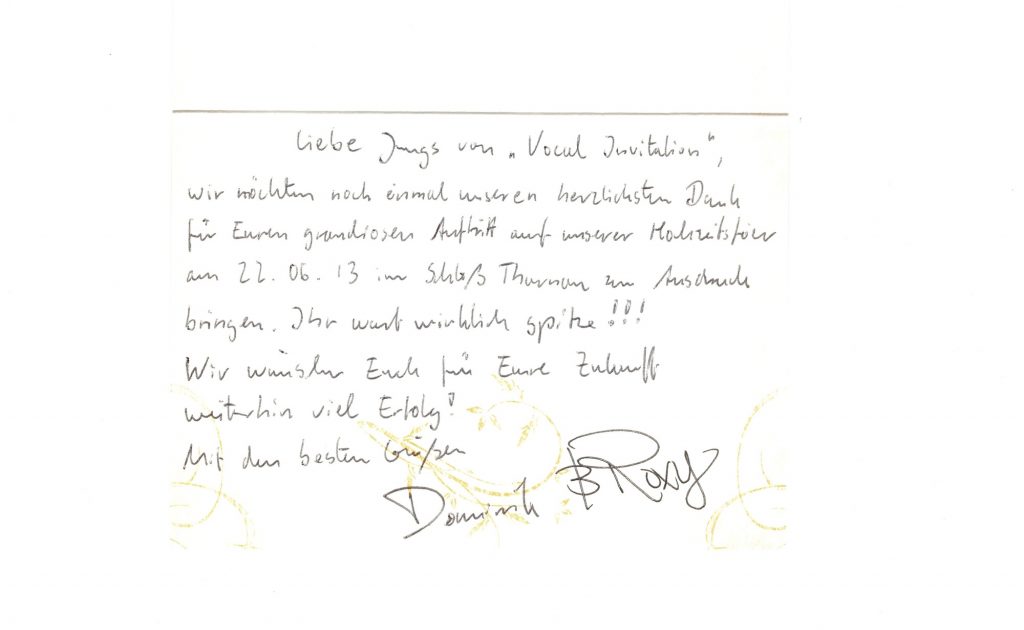 Liebe Jungs von „Vocal Invitation",
wir möchten noch einmal unseren herzlichsten Dank
für Euren grandiosen Auftritt auf unserer Hochzeitsfeier
am 22.06.13 im Schloß Thurnau zum Ausdruck
bringen. Ihr wart wirklich spitze!!!
Wir wünschen Euch für Eure Zukunft
weiterhin viel Erfolg!
Mit den besten Grüßen
Dominik & Roxy